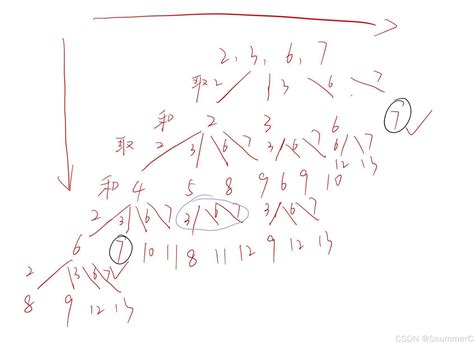 2, 3, 6, 7
取 2 3 6 7
和 2 3 6 7
取 2 3 6 7 3 6 7 6 7
12 13
和 4 5 8 9 6 9 10
2 3 6 7 3 6 7 3 6 7
6 7 10 11 8 11 12 9 12 13
2 3 6 7
8 9 12 13
CSDN @SsummerC